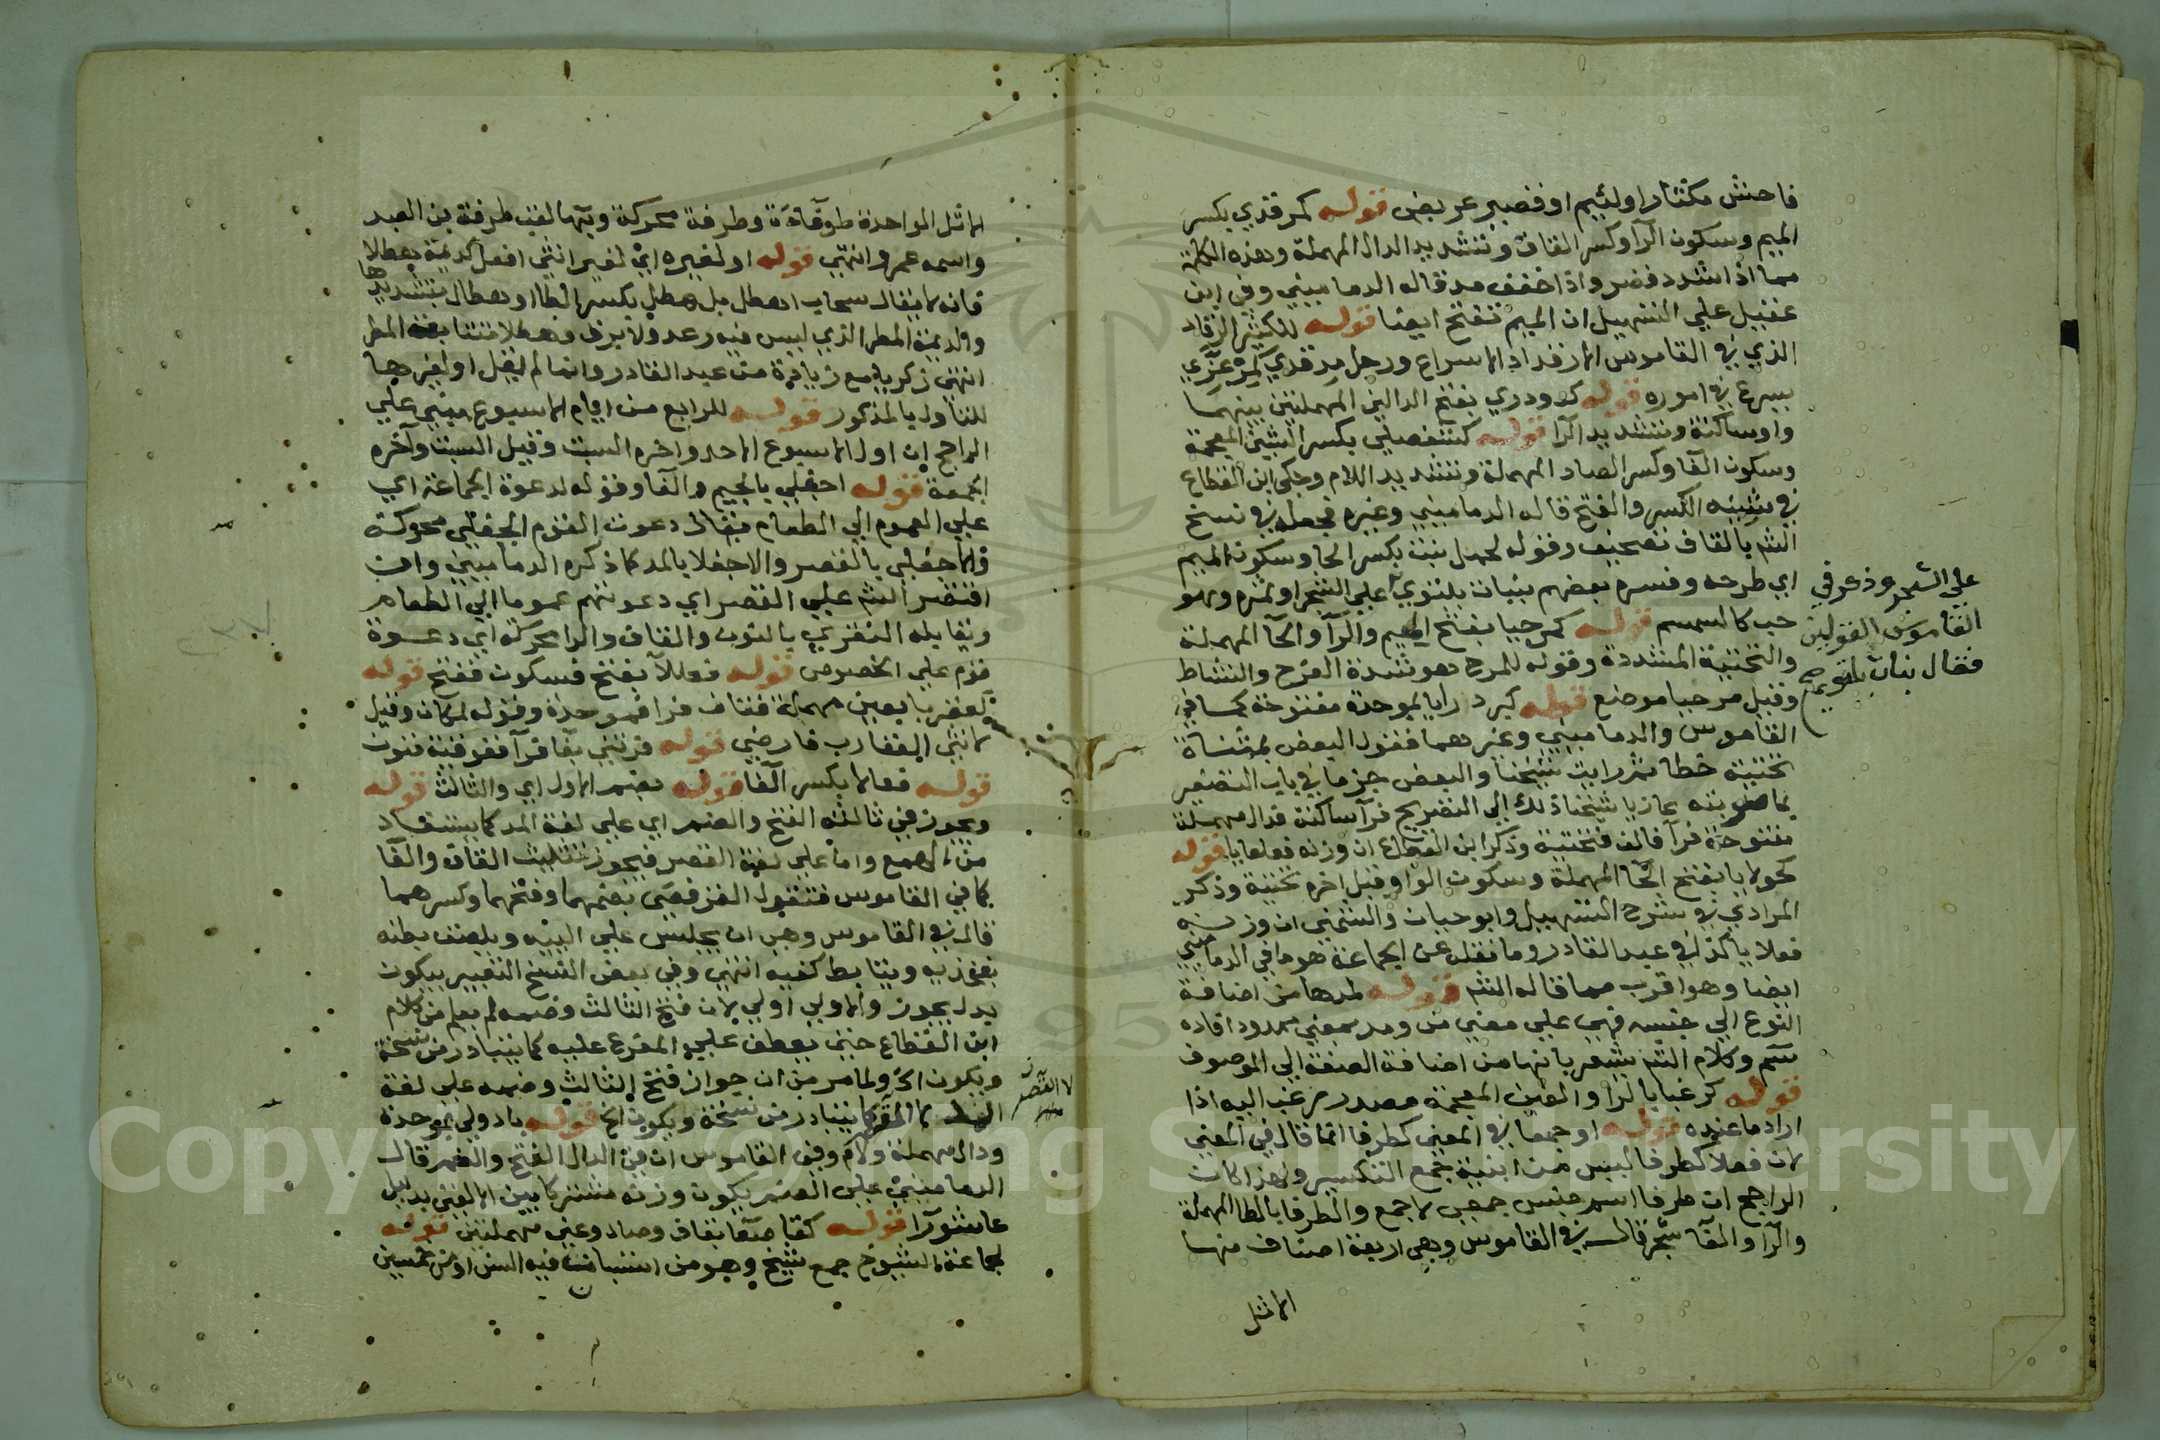 فاحش مكثار او لئيم او قصير عريض قوله كمرقدي بكسر
الميم وسكون الرا وكسر القاف وتشديد الدال المهملة وهذه الكلمة
مما اذا شدد قصر واذا خفف مد قاله الدماميني وفي ابن
عقيل علي التسهيل ان الميم تفتح ايضا قوله للكثير الرقاد
الذي في القاموس الارقداد الاسراع ورجل مرقدي كمرعزي
يسرع في اموره قوله كدودري بفتح الدالين المهملتين بينهما
واو ساكنة وتشديد الرا قوله كشفصلي بكسر الشين المعجمة
وسكون الفا وكسر الصاد المهملة وتشديد اللام وحكي ابن القطاع
في شينه الكسر والفتح قاله الدماميني وغيره فجعله في نسخ
الشم بالقاف تصحيف وقوله لحمل نبت بكسر الحا وسكون الميم
اي طرحه وفسره بعضهم بنبات يلتوي علي الشجر او ثمره وهو
حب كالسمسم قوله كمرحيا بفتح الميم والرا والحا المهملة
والتحتية المشددة وقوله للمرح هو شدة الفرح والنشاط
وقيل مرحيا موضع قوله كبردرايا بموحدة مفتوحة كما في
القاموس والدماميني وغيرهما فقول البعض بمثناة
تحتية خطا ثم رايت شيخنا والبعض جزما في باب التصغير
بما صوبته عازيا شيخنا ذلك الي التصريح فرا ساكنة فدال مهملة
مفتوحة فرا فالف فتحتية وذكر ابن القطاع ان وزنه فعلعايا قوله
كحولايا بفتح الحا المهملة وسكون الواو قبل اخره تحتية وذكر
المرادي في شرح التسهيل وابو حيان والشمني ان وزنه
فعلايا كذا في عبد القادر وما نقله عن الجماعة هو ما في الدماميني
ايضا وهو اقرب مما قاله الشم قوله لمدها من اضافة
النوع الي جنسه فهي علي معني من ومد بمعني ممدود افاده
سم وكلام الشم يشعر بانها من اضافة الصفة الي الموصوف
قوله كرغبا بالرا والغين المعجمة مصدر رغب اليه اذا
اراد ما عنده قوله او جمعا في المعني كطرفا انما قال في المعني
لان فعلا كطرفا ليس من ابنية جمع التكسير ولهذا كان
الراجح ان طرفا اسم جنس جمعي لا جمع والطرفا بالطا المهملة
والرا والفا شجر قال في القاموس وهي اربعة اصناف منها
الاثل
علي الشجر وذعر في
القاموس القولين
فقال نبات يلتوي
الاثل الواحدة طرفاءة وطرفة محركة وبها لقب طرفة بن العبد
واسمه عمرو انتهي قوله او لغيره اي لغير انثي افعل كديمة هطلا
فانه لا يقال سحاب اهطل بل هطل بكسر الطا او هطال بتشديدها
والديمة المطر الذي ليس فيه رعد ولا برق وهطلا متتابعة المطر
انتهي زكريا مع زيادة من عبد القادر وانما لم يقل او لغيرها
للتاول بالمذكور قوله للرابع من ايام الاسبوع مبني علي
الراجح ان اول الاسبوع الاحد واخره السبت وقيل السبت وآخره
الجمعة قوله اجفلي بالجيم والفا وقوله لدعوة الجماعة اي
علي العموم الي الطعام فيقال دعوت القوم الجفلي محركة
والاجفلي بالقصر والاجفلا بالمد كما ذكره الدماميني وان
اقتصر الشم علي القصر اي دعوتهم عموما الي الطعام
ويقابله النقري بالنون والقاف والرا محركة اي دعوة
قوم علي الخصوص قوله فعللا بفتح فسكون ففتح قوله
كعقربا بعين مهملة فقاف فرا فموحدة وقوله لمكان وقيل
لانثي العقارب قارضي قوله قرنثي بقاف را ففوقية فنون
قوله فعالا بكسر الفا قوله بضم الاول اي والثالث قوله
ويجوز في ثالثه الفتح والضم اي علي لغة المد كما يستفاد
من الهمع واما علي لغة القصر فيجوز تثليث القاف والفا
كما في القاموس فتقول القرفصي بضمهما وفتحهما وكسرهما
قال في القاموس وهي ان يجلس علي اليتيه ويلصق بطنه
بفخذيه ويتابط كفيه انتهي وفي بعض النسخ التعبير بيكون
بدل يجوز والاولي اولي لان فتح الثالث وضمه لم يعلم من كلام
ابن القطاع حتي يعطف علي المفرع عليه كما يتبادر من نسخة
ويكون الخ ولما مر من ان جواز فتح الثالث وضمه علي لغة
المد لا القصر كما يتبادر من نسخة ويكون الخ قوله بادولي بموحدة
ودال مهملة ولام وفي القاموس ان في الدال الفتح والضم قال
الدماميني علي الضم يكون وزنه مشتركا بين الالفين بدليل
عاشورا قوله كقاصعا بقاف وصاد وعين مهملتين قوله
لجماعة الشيوخ جمع شيخ وهو من استبانت فيه السن او من خمسين
لا القصر